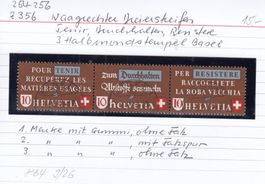 254-256
Waagrechte Dreierstreifen
15.-
3 Halbmondstempel Basel
POUR TENIR
RECUPEREZ LES
MATIERES USAGEES
10 HELVETIA
Zum Durchhalten
Altstoffe sammeln
10 HELVETIA
PER RESISTERE
RACCOGLIETE
LA ROBA VECCHIA
10 HELVETIA
1 Marke mit Gummi, ohne Falz
2. " " , mit Falzspur
3 " " , ohne Falz